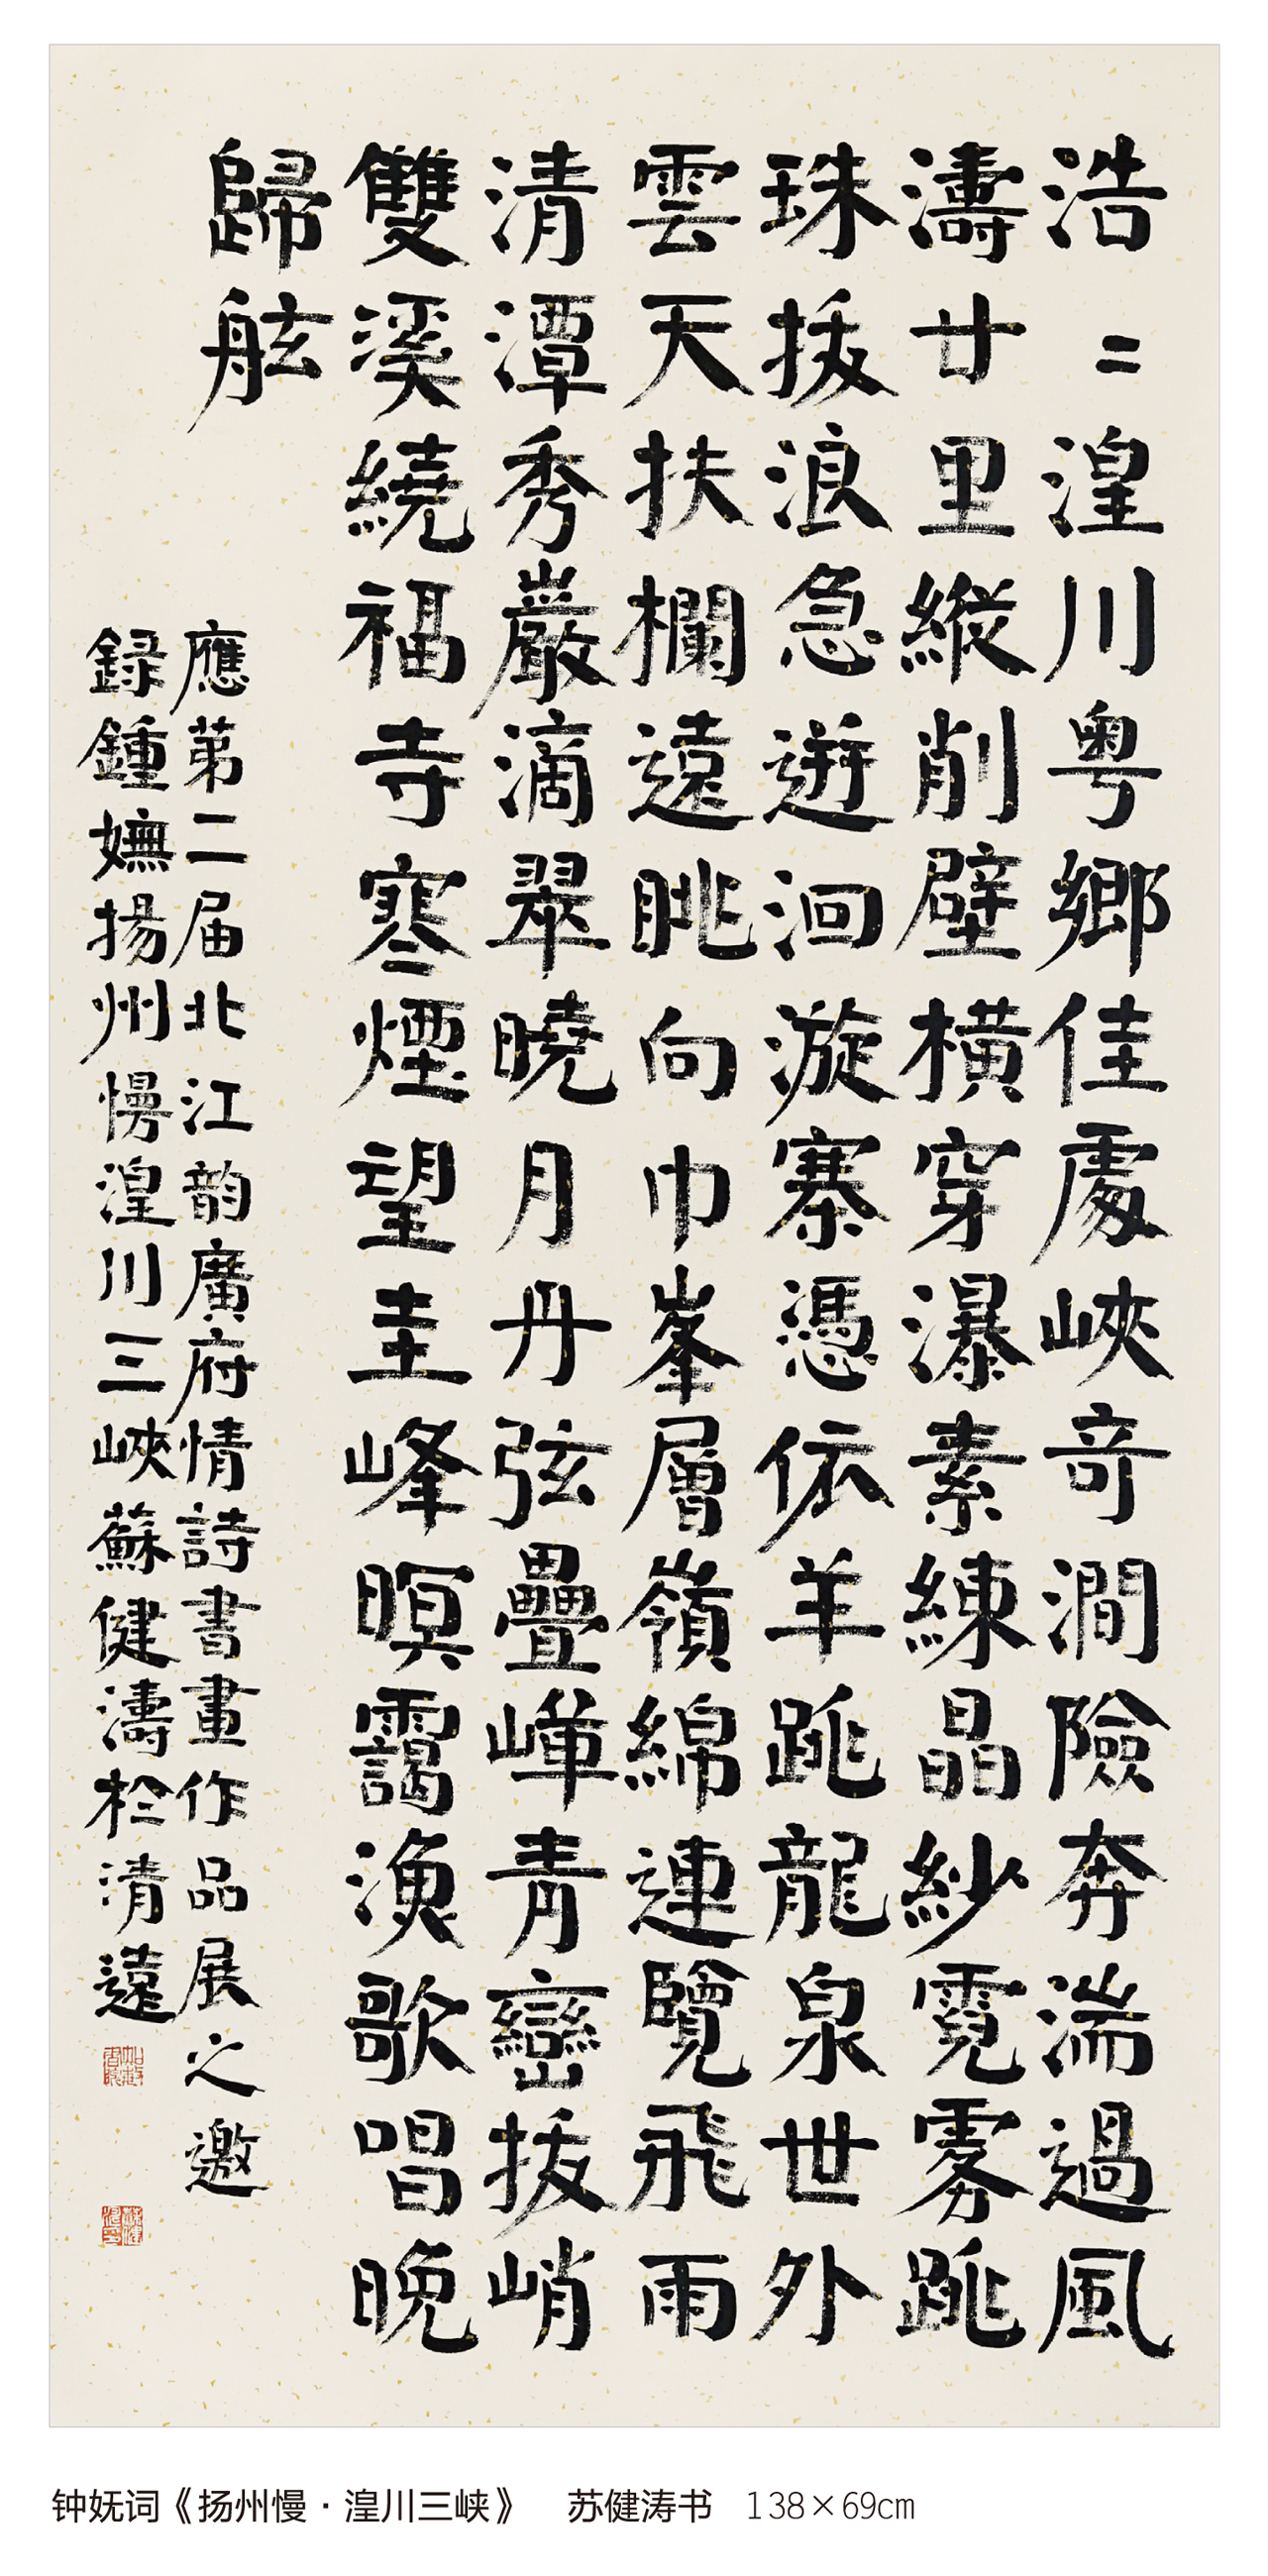 浩〻湟川粵鄉佳處峽奇澗險奔湍過風
濤廿里縱削壁橫穿瀑素練晶紗霓雾跳
珠拔浪急逰洄漩寨憑依羊跳龍泉世外
雲天扶欄遠眺向巾峯層嶺綿連覽飛雨
清潭秀巖滴翠曉月丹弦疊嶂青巒拔峭
雙溪繞福寺寒煙望圭峰暝靄漁歌唱晚
歸舷
應苐二届北江韵廣府情詩書畫作品展之邀
録鍾嫵揚州慢湟川三峽蘇健濤於清遠
钟妩词《扬州慢·湟川三峡》 苏健涛书 138×69cm